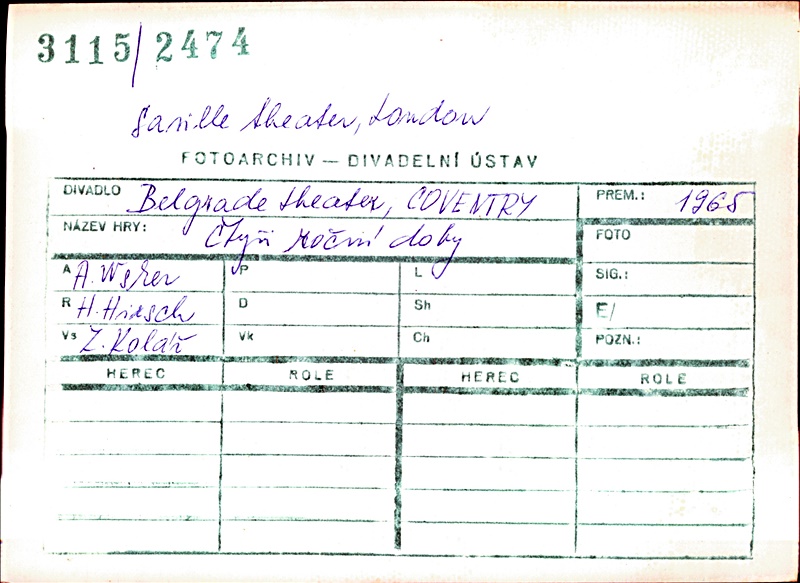 3115/2474
Saville theater, London
FOTOARCHIV — DIVADELNÍ ÚSTAV
DIVADLO Belgrade theater, COVENTRY PREM.: 1965
NÁZEV HRY: Čtyři roční doby FOTO
A A. Wsker P L SIG.:
R H. Hirsch D Sh E/
Vs Z. Kolář Vk Ch POZN.:
HEREC ROLE HEREC ROLE